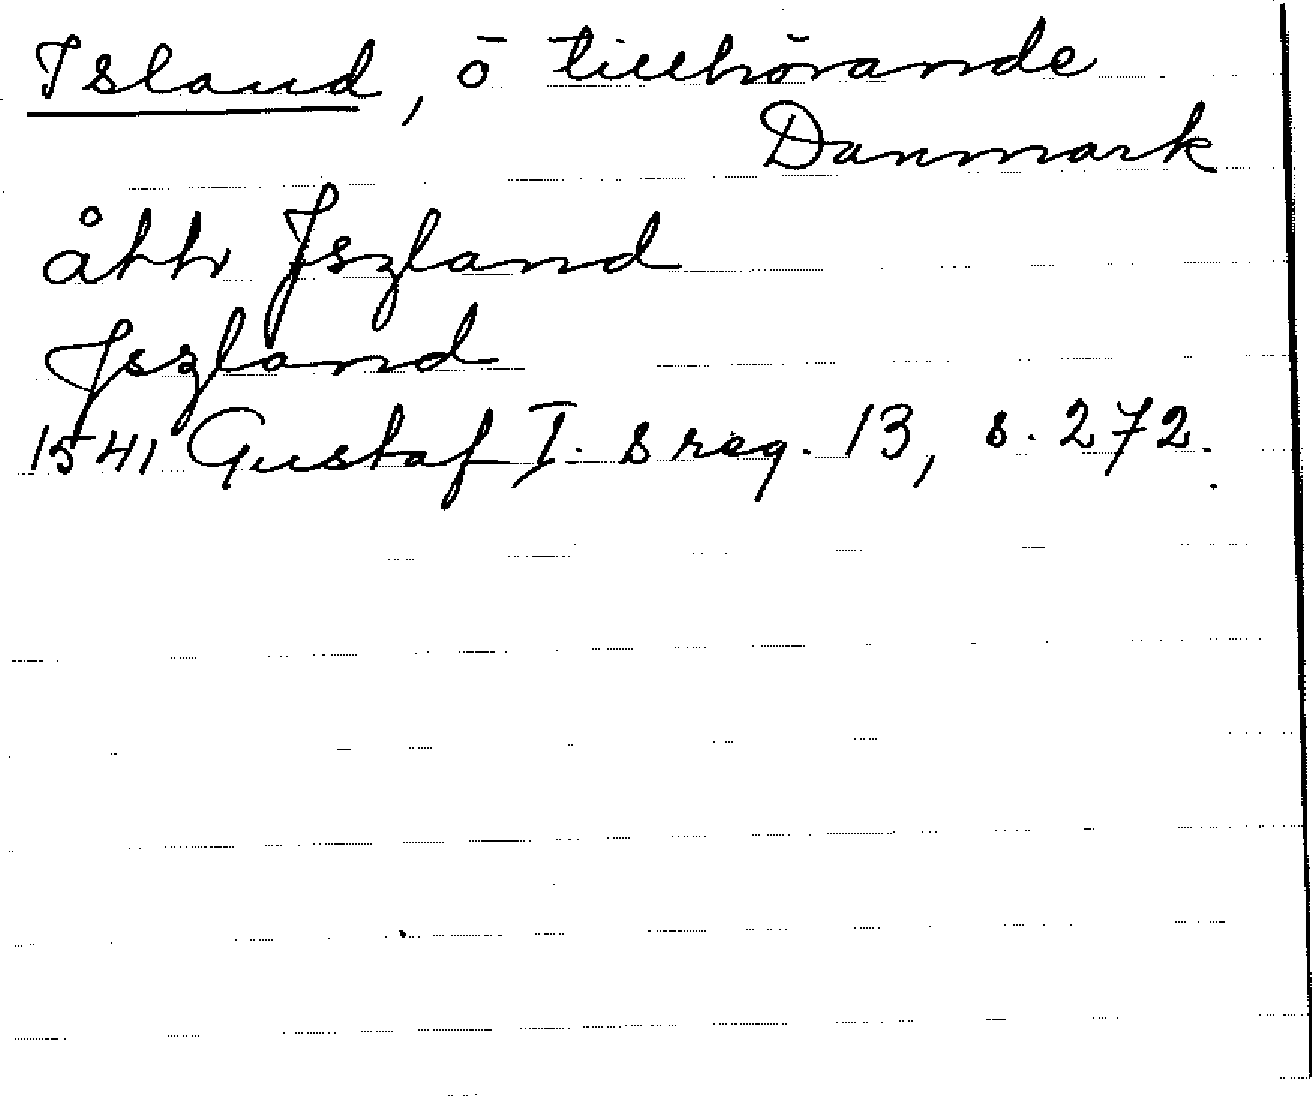 Island, ö tillhörande
Danmark
åtth Jszland
Jszland
1541 Gustaf I. s reg. 13, s. 272.